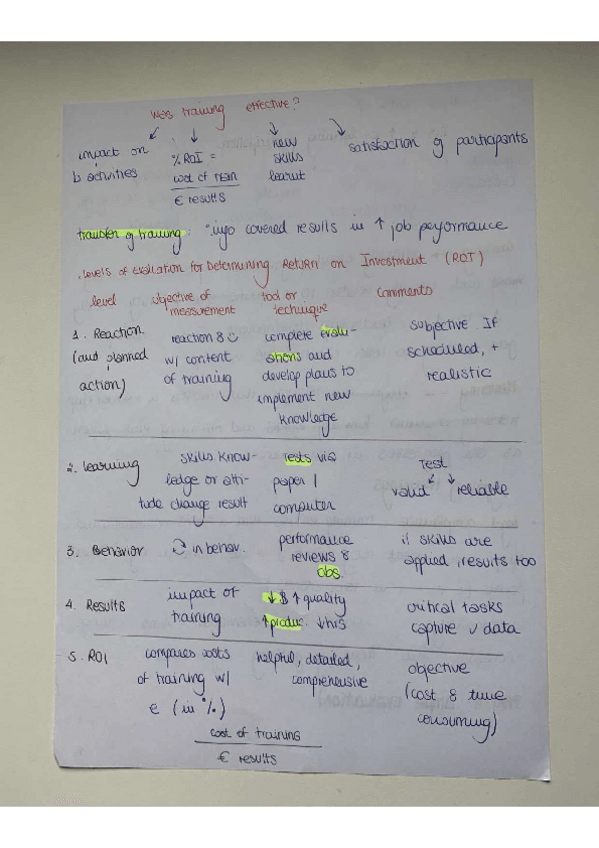 Was training effective?
impact on
b activities
% ROI =
cost of train
€ results
new
skills
learnt
satisfaction of participants
transfer of training: info covered results in ↑ job performance
. Levels of evaluation for Determining Return on Investment (ROI)
level
objective of
measurement
tool or
technique
comments
1. Reaction
(and planned
action)
reaction & ☺
w/ content
of training
complete evalu-
ations and
develop plans to
implement new
knowledge
subjective. If
scheduled, +
realistic
2. Learning
skills know-
ledge or atti-
tude change result
Tests via
paper /
computer
Test
valid reliable
3. Behavior
in behav.
performance
reviews &
obs.
if skills are
applied, results too
4. Results
impact of
training
↓ $ ↑ quality
↑ produc.
critical tasks
capture data
5. ROI
compares costs
of training w/
€ (in %)
helpful, detailed,
comprehensive
objective
(cost & time
consuming)
cost of training
€ results